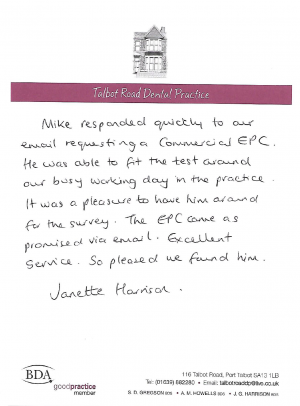 Talbot Road Dental Practice
Mike responded quickly to our
email requesting a Commercial EPC.
He was able to fit the test around
our busy working day in the practice.
It was a pleasure to have him around
for the survey. The EPC came as
promised via email. Excellent
Service. So pleased we found him.
Janette Harrison.
BDA
goodpractice
member
116 Talbot Road, Port Talbot SA13 1LB
Tel: (01639) 882280 • Email: talbotroaddp@live.co.uk
S. D. GREGSON BDS • A. M. HOWELLS BDS • J. G. HARRISON BDS